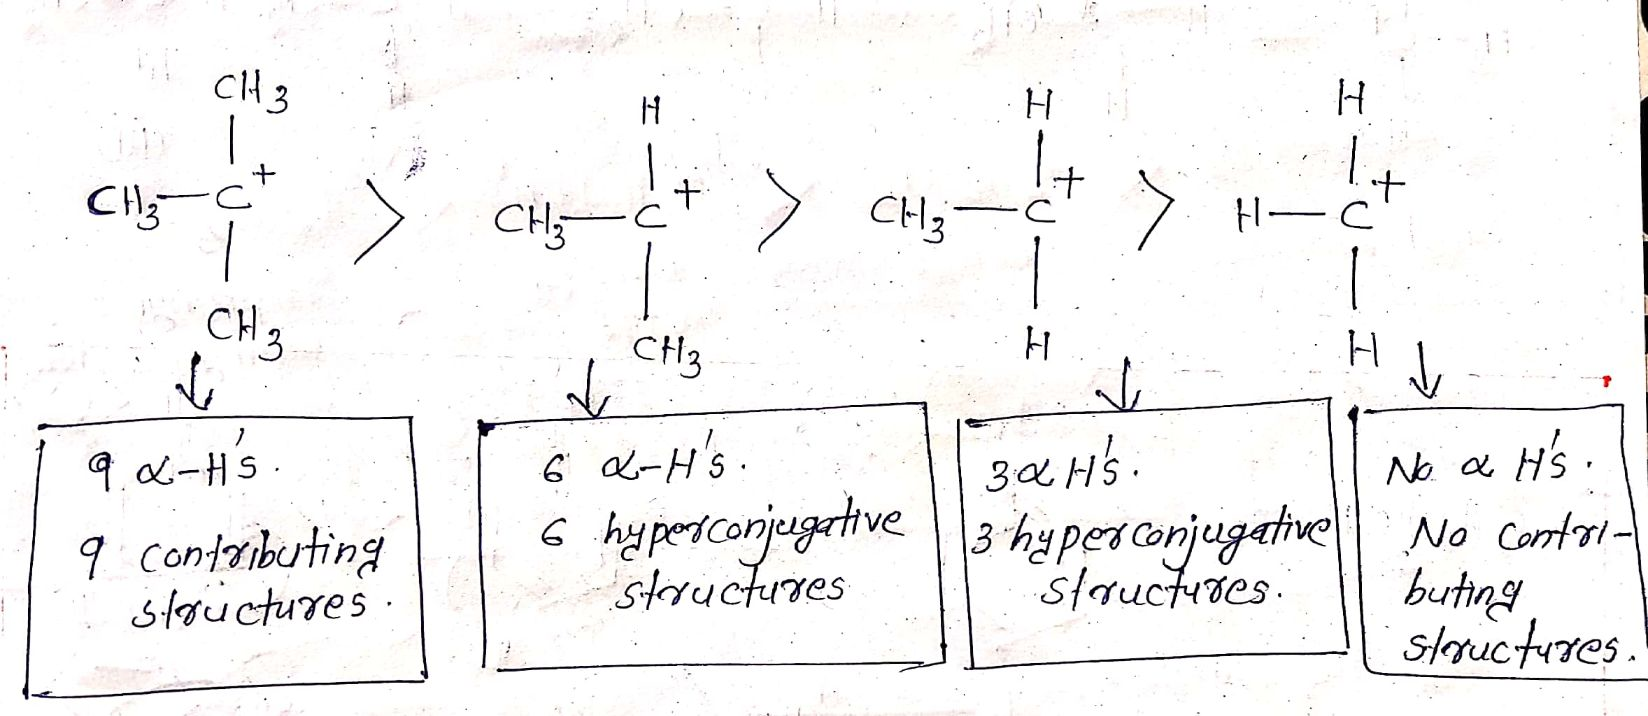 CH3 H H H
CH3—C+ > CH3—C+ > CH3—C+ > H—C+
CH3 CH3 H H
9 α-H's.
9 contributing
structures.
6 α-H's.
6 hyperconjugative
structures
3 α H's.
3 hyperconjugative
structures.
No α H's.
No contri-
buting
structures.